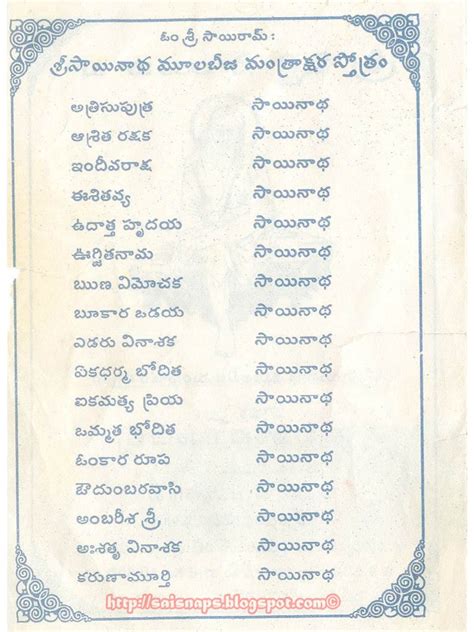 ఓం శ్రీ సాయిరామ్ :
శ్రీసాయినాథ మూలబీజ మంత్రాక్షర స్తోత్రం
అత్రిసుపుత్ర సాయినాథ
ఆశ్రిత రక్షక సాయినాథ
ఇందీవరాక్ష సాయినాథ
ఈశితవ్య సాయినాథ
ఉదాత్త హృదయ సాయినాథ
ఊర్జితనామ సాయినాథ
ఋణ విమోచక సాయినాథ
ౠకార ఒడయ సాయినాథ
ఎడరు వినాశక సాయినాథ
ఏకధర్మ భోదిత సాయినాథ
ఐకమత్య ప్రియ సాయినాథ
ఒమ్మత భోదిత సాయినాథ
ఓంకార రూప సాయినాథ
ఔదుంబరవాసి సాయినాథ
అంబరీశ శ్రీ సాయినాథ
అఃశతృ వినాశక సాయినాథ
కరుణామూర్తి సాయినాథ
http://saisnaps.blogspot.com©